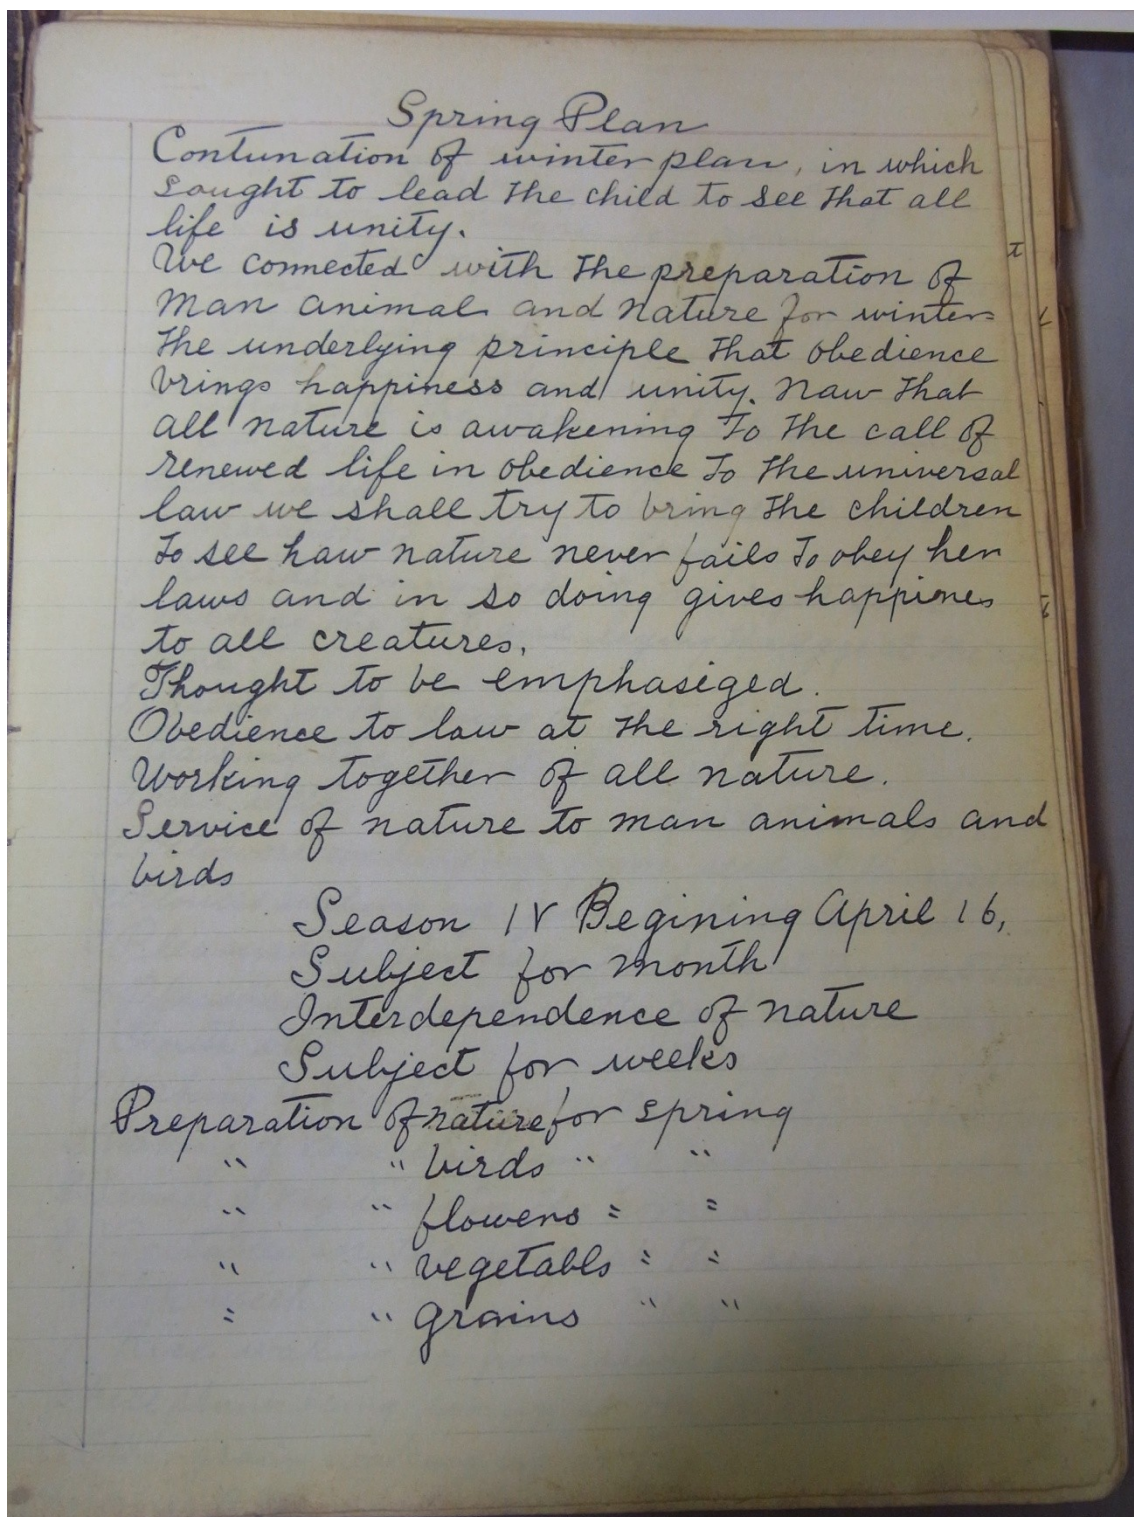 Spring Plan
Contunation of winter plan, in which
sought to lead the child to see that all
life is unity.
We connected with the preparation of
man animal and nature for winter
the underlying principle that obedience
brings happiness and unity. Naw that
all nature is awakening to the call of
renewed life in obedience to the universal
law we shall try to bring the children
to see haw nature never fails to obey her
laws and in so doing gives happines
to all creatures.
Thought to be emphasiged.
Obedience to law at the right time.
Working together of all nature.
Service of nature to man animals and
birds
Season IV Begining April 16,
Subject for month
Interdependence of nature
Subject for weeks
Preparation of nature for spring
" " birds " "
" " flowers " "
" " vegetabls " "
" " grains " "